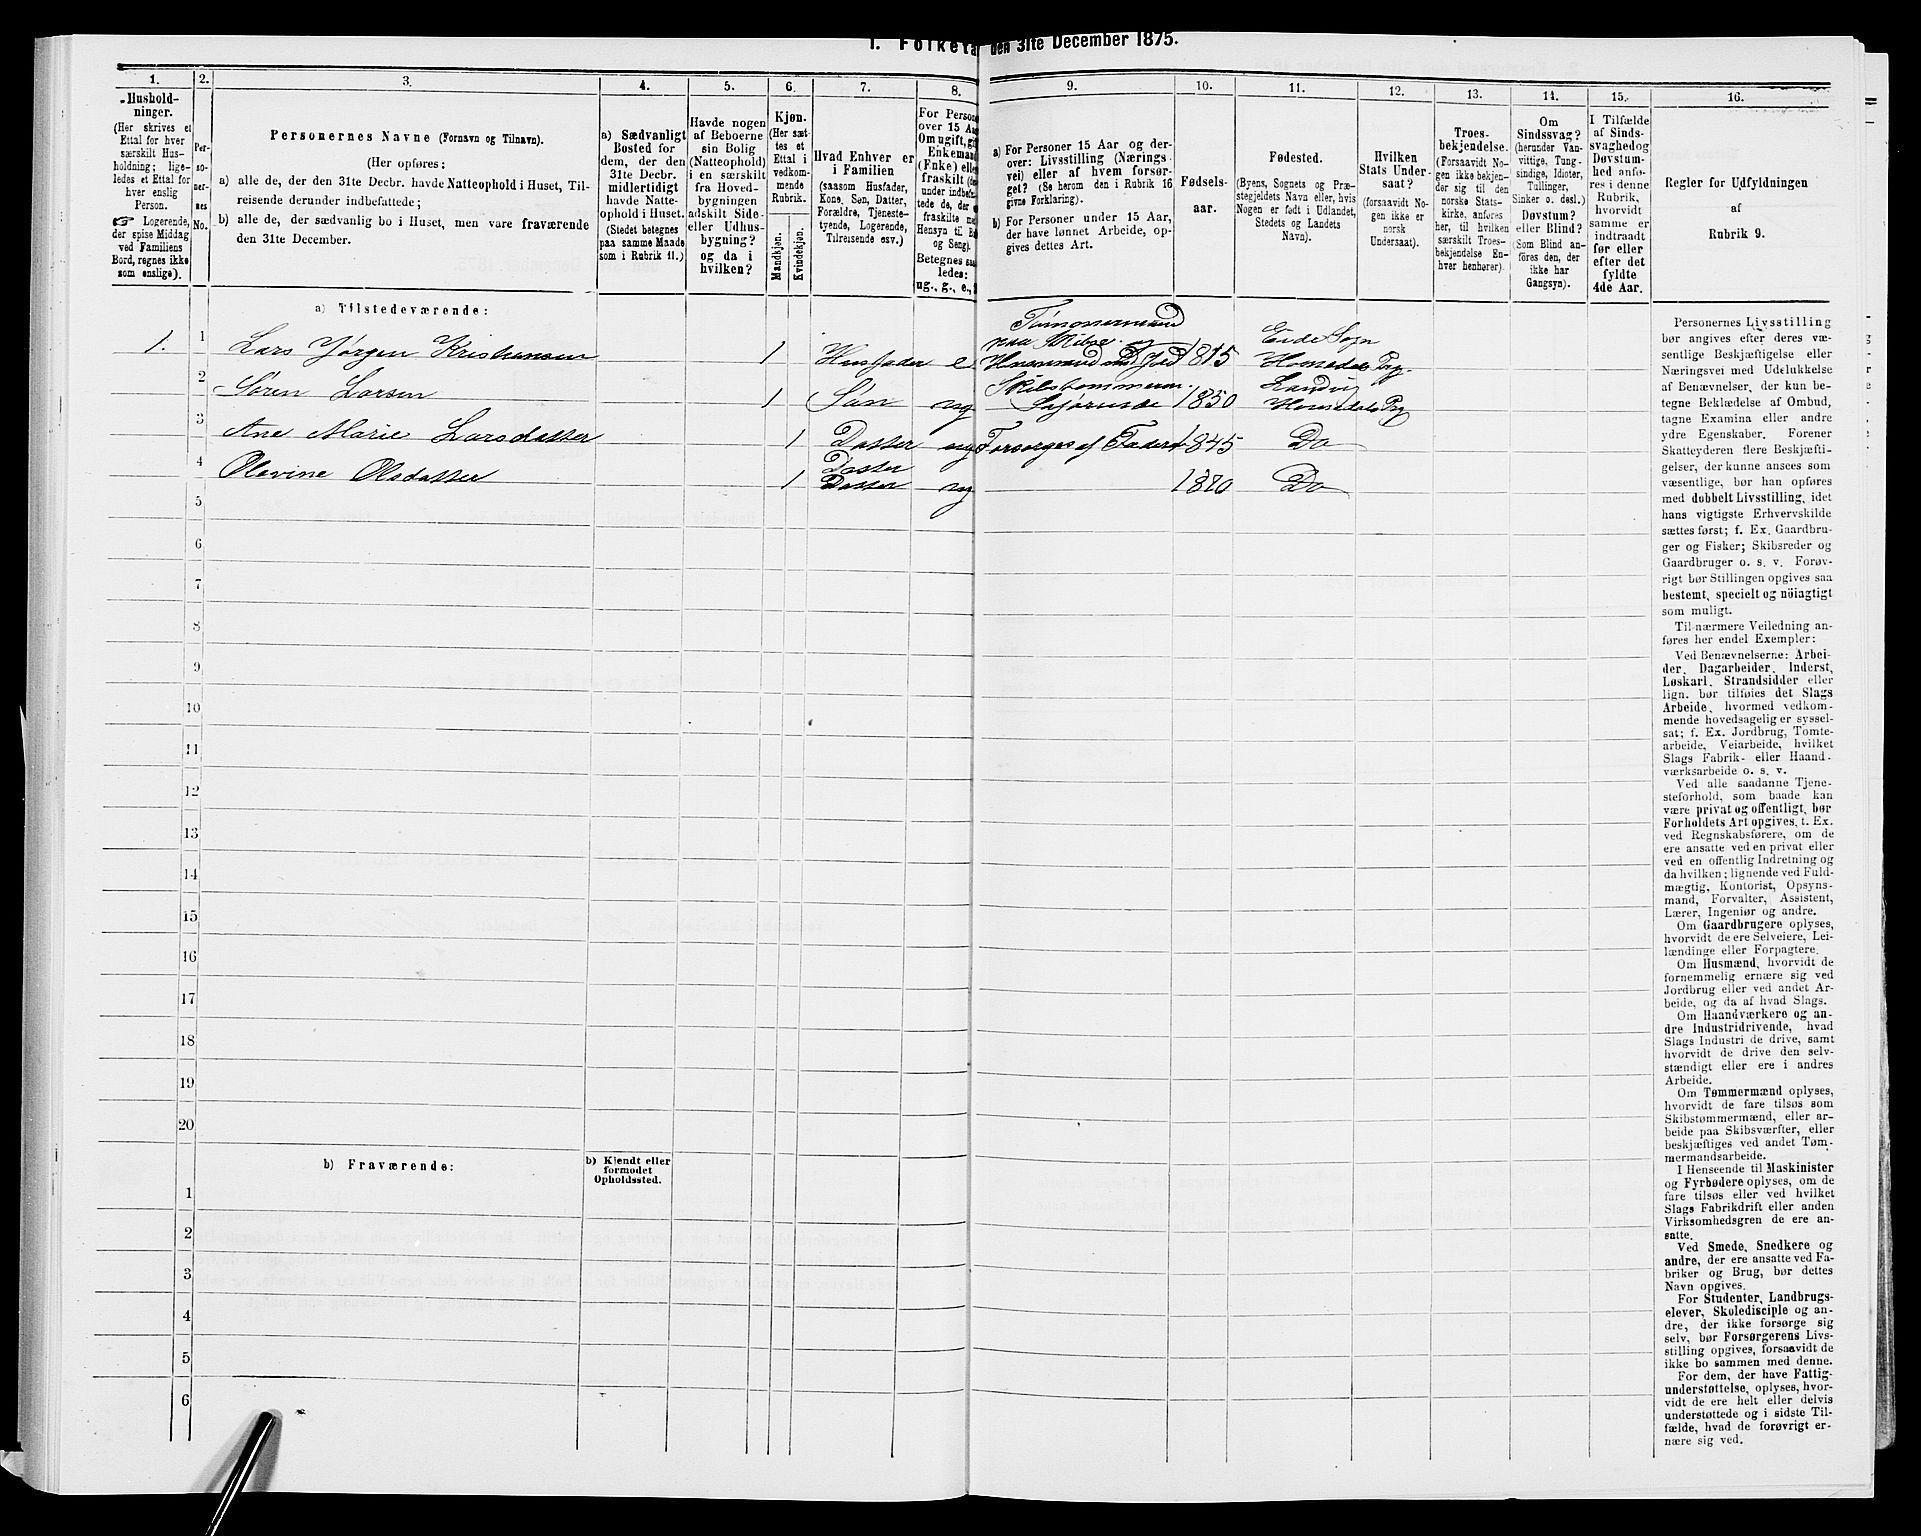 1. Folketæ den 31te December 1875.
1.
2.
3.
4.
5.
6.
7.
8.
9.
10.
11.
12.
13.
14.
15.
16.
Hushold-
ninger.
(Her skrives et
Ettal for hver
særskilt Hus-
holdning; lige-
ledes et Ettal for
hver enslig
Person.
☞ Logerende,
der spise Middag
ved Familiens
Bord, regnes ikke
som enslige).
Per-
so-
ner-
nes
No.
Personernes Navne (Fornavn og Tilnavn).
(Her opføres:
a) alle de, der den 31te Decbr. havde Natteophold i Huset, Til-
reisende derunder indbefattede;
b) alle de, der sædvanlig bo i Huset, men vare fraværende
den 31te December.
a) Sædvanligt
Bosted for
dem, der den
31te Decbr.
midlertidigt
havde Natte-
ophold i Huset.
(Stedet betegnes
paa samme Maade
som i Rubrik 11.)
Havde nogen
af Beboerne
sin Bolig
(Natteophold)
i en særskilt
fra Hoved-
bygningen
adskilt Side-
eller Udhus-
bygning?
og da i
hvilken?
Kjøn.
(Her sæt-
tes et
Ettal i
vedkom-
mende
Rubrik.
Mandkjøn.
Kvindekjøn.
Hvad Enhver er
i Familien
(saasom Husfader,
Kone, Søn, Datter,
Forældre, Tjeneste-
tyende, Logerende,
Tilreisende osv.)
For Persone
over 15 Aa
Om ugift, gif
Enkemand
(Enke) elle
fraskilt
under indbefat
tede de, der e
fraskilte me
Hensyn til B
og Seng).
Betegnes saa
ledes:
ug., g., e.,
a) For Personer 15 Aar og der-
over: Livsstilling (Nærings-
vei) eller af hvem forsør-
get? (Se herom den i Rubrik 16
givne Forklaring).
b) For Personer under 15 Aar,
der have lønnet Arbeide, op-
gives dettes Art.
Fødsels-
aar.
Fødested.
(Byens, Sognets og Præ-
stegjeldets Navn eller, hvis
Nogen er født i Udlandet,
Stedets og Landets
Navn).
Hvilken
Stats Under-
saat?
(forsaavidt No-
gen ikke er
norsk
Undersaat).
Troes-
bekjendelse.
(Forsaavidt No-
gen ikke bekjen-
der sig til den
norske Stats-
kirke, anføres
her, til hvilken
særskilt Troes-
bekjendelse En-
hver henhører).
Om
Sindssvag?
(herunder Van-
vittige, Tung-
sindige, Idioter,
Tullinger,
Sinker o. desl.)
Døvstum?
eller Blind?
(Som Blind an-
føres den, der
ikke har
Gangsyn).
I Tilfælde
af Sinds-
svaghed og
Døvstum-
hed anfø-
res i denne
Rubrik,
hvorvidt
samme er
indtraadt
før eller
efter det
fyldte
4de Aar.
Regler for Udfyldningen
af
Rubrik 9.
a) Tilstedeværende:
1. 1 Lars Jørgen Kristensen 1 Husfader e Tømmermand paa Skibe og Huusmand med Jord 1815 Eide Sogn Homedals Prg.
2 Søren Larsen 1 Søn ug Skibstømmerm. Søfarende 1850 Landvig Homedals Prg
3 Ane Marie Larsdatter 1 Datter ug Forsørges af Faderen 1845 Do
4 Olevine Olsdatter 1 Datter Datter ug 1870 Do
5
6
7
8
9
10
11
12
13
14
15
16
17
18
19
20
b) Fraværende:
b) Kjendt eller
formodet
Opholdssted.
1
2
3
4
5
6
Personernes Livsstilling
bør angives efter deres væ-
sentlige Beskjæftigelse eller
Næringsvei med Udelukkelse
af Benævnelser, der kun be-
tegne Beklædelse af Ombud,
tagne Examina eller andre
ydre Egenskaber. Forener
Skatteyderen flere Beskjæfti-
gelser, der kunne ansees som
væsentlige, bør han opføres
med dobbelt Livsstilling, idet
hans vigtigste Erhvervskilde
sættes først; f. Ex. Gaardbru-
ger og Fisker; Skibsreder og
Gaardbruger o. s. v. Forøv-
rigt bør Stillingen opgives saa
bestemt, specielt og nöiagtigt
som muligt.
Til nærmere Veiledning an-
føres her endel Exempler:
Ved Benævnelserne: Arbei-
der, Dagarbeider, Inderst,
Løskarl, Strandsidder eller
lign. bør tilføies det Slags
Arbeide, hvormed vedkom-
mende hovedsagelig er syssel-
sat; f. Ex. Jordbrug, Tomte-
arbeide, Veiarbeide, hvilket
Slags Fabrik- eller Haand-
værksarbeide o. s. v.
Ved alle saadanne Tjene-
steforhold, som baade kan
være privat og offentligt, bør
Forholdets Art opgives, t. Ex.
ved Regnskabsførere, om de
ere ansatte ved en privat eller
ved en offentlig Indretning og
da hvilken; lignende ved Fuld-
mægtig, Kontorist, Opsyns-
mand, Forvalter, Assistent,
Lærer, Ingeniør og andre.
Om Gaardbrugere oplyses,
hvorvidt de ere Selveiere, Lei-
lændinge eller Forpagtere.
Om Husmænd, hvorvidt de
fornemmelig ernære sig ved
Jordbrug eller ved andet Ar-
beide, og da af hvad Slags.
Om Haandværkere og an-
dre Industridrivende, hvad
Slags Industri de drive, samt
hvorvidt de drive den selv-
stændigt eller ere i andres
Arbeide.
Om Tømmermænd oplyses,
hvorvidt de fare tilsøs som
Skibstømmermænd, eller ar-
beide paa Skibsværfter, eller
beskjæftiges ved andet Tøm-
mermandsarbeide.
I Henseende til Maskinister
og Fyrbødere oplyses, om de
fare tilsøs eller ved hvilket
Slags Fabrikdrift eller anden
Virksomhedsgren de ere an-
satte.
Ved Smede, Snedkere og
andre, der ere ansatte ved Fa-
briker og Brug, bør dettes
Navn opgives.
For Studenter, Landbrugs-
elever, Skoledisciple og an-
dre, der ikke forsørge sig
selv, bør Forsørgerens Livs-
stilling opgives, forsaavidt de
ikke bo sammen med denne.
For dem, der have Fattig-
understøttelse, oplyses, hvor-
vidt de ere helt eller delvis
understøttede og i sidste Til-
fælde, hvad de forøvrigt er-
nære sig ved.